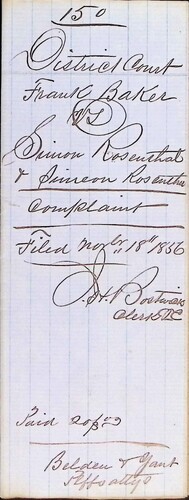 150
District Court
Frank Baker
vs
Simon Rosenthal
& Simeon Rosenthal
Complaint
Filed Novbr 18th 1856
J. H. Bostwick
Clerk DC
Paid
Belden & Gant
Plffs attys